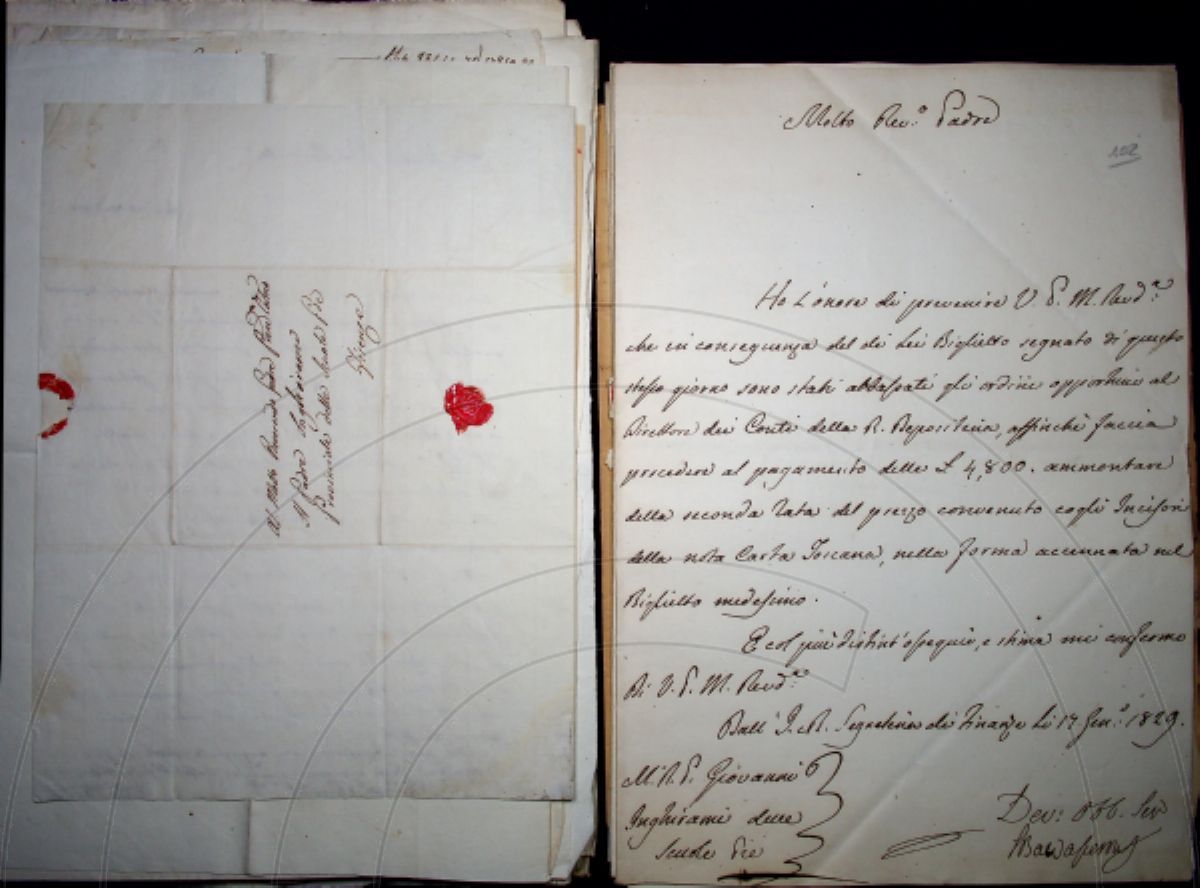 Al Molto Reverendo Padre
Il Padre Inghirami
Provinciale delle Scuole Pie
Firenze
Molto Rev.º Padre
102
Ho l'onore di prevenire V. P. M. Rev.dª
che in conseguenza del di Lei Biglietto segnato di questo
stesso giorno sono stati abbassati gli ordini opportuni al
Direttore dei Conti della R. Depositeria, affinchè faccia
procedere al pagamento delle £ 4,800. ammontare
della seconda rata del prezzo convenuto cogli Incisori
della nota Carta Toscana, nella forma accennata nel
Biglietto medesimo.
E col più distint'ossequio, e stima mi confermo
Di V. P. M. Rev.dª
Dall' I. e R. Segreteria di Finanze Li 17 Gen.º 1829.
M. R. P. Giovanni
Inghirami delle
Scuole Pie
Dev: Obb. Ser